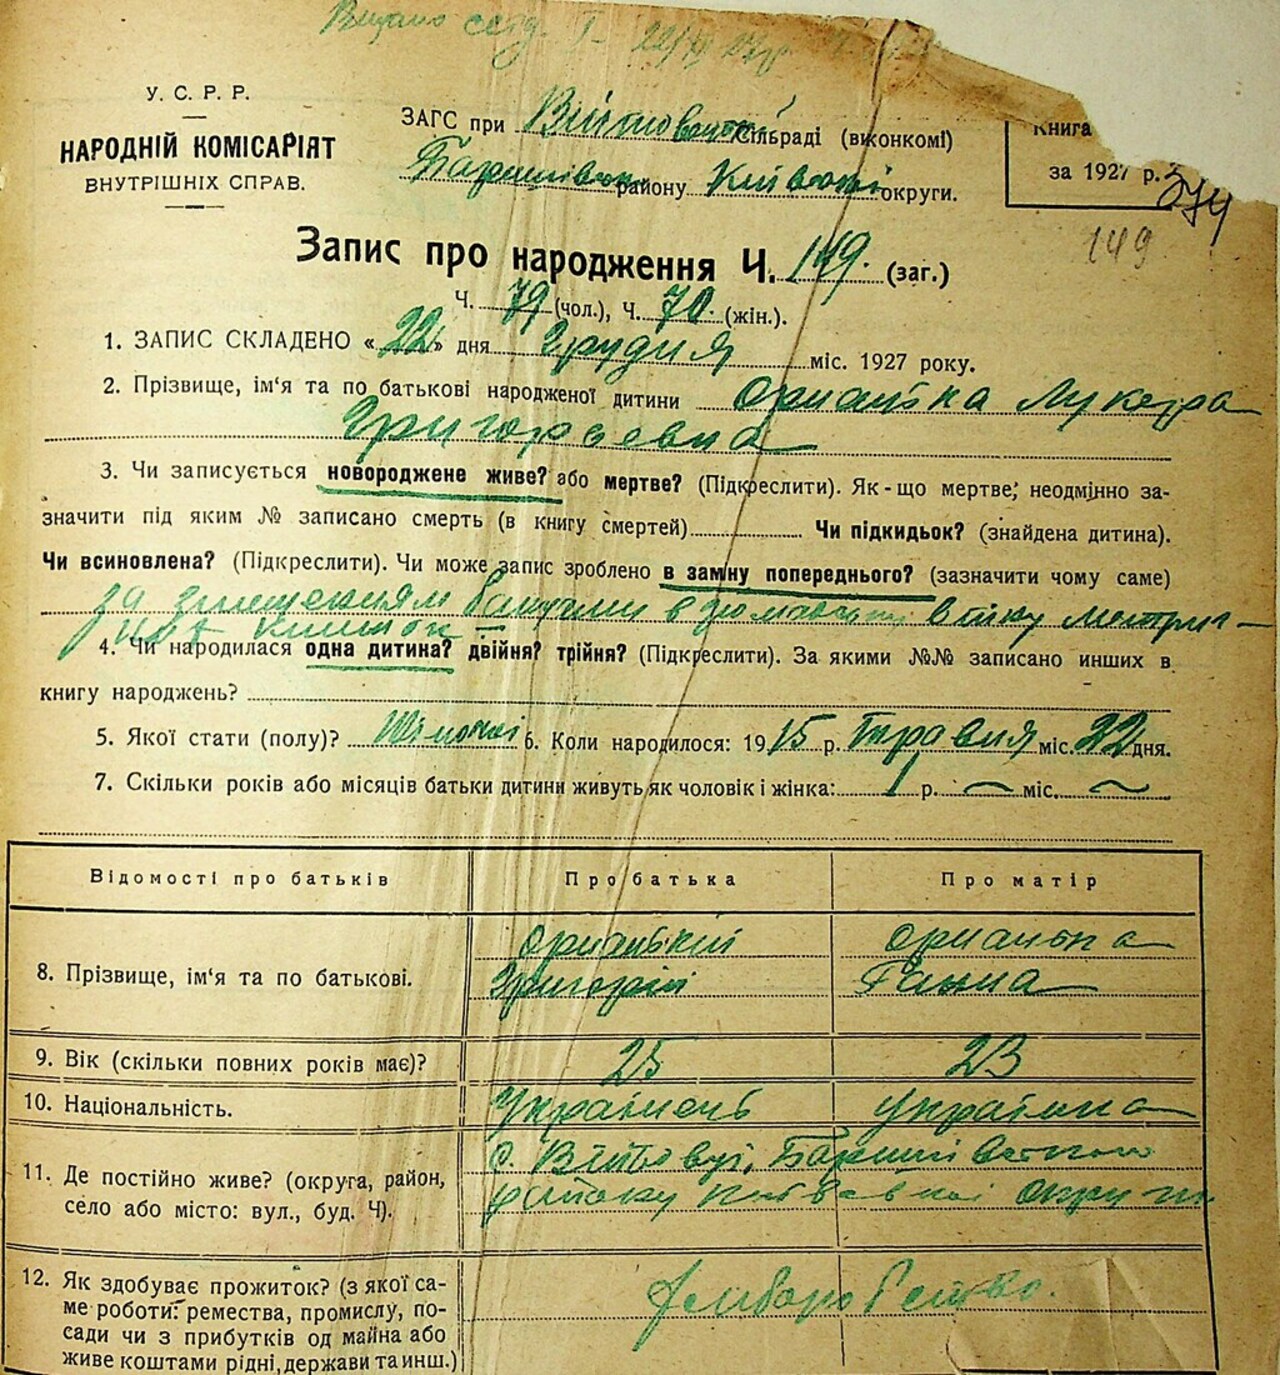 Видано
У. С. Р. Р.
НАРОДНІЙ КОМІСАРІЯТ
ВНУТРІШНІХ СПРАВ.
ЗАГС при Війтовецькій сільраді (виконкомі)
Баришівськ району Київської округи.
Книга
за 1927 р.
374
149
Запис про народження Ч. 149. (заг.)
Ч. 79 (чол.), Ч. 70. (жін.).
1. ЗАПИС СКЛАДЕНО «22» дня Грудня міс. 1927 року.
2. Прізвище, ім'я та по батькові народженої дитини Лукера
Григорьевна
3. Чи записується новороджене живе? або мертве? (Підкреслити). Як-що мертве, неодмінно за-
значити під яким № записано смерть (в книгу смертей) Чи підкидьок? (знайдена дитина).
Чи всиновлена? (Підкреслити). Чи може запис зроблено в заміну попереднього? (зазначити чому саме)
за в
4. Чи народилася одна дитина? двійня? трійня? (Підкреслити). За якими №№ записано инших в
книгу народжень?
5. Якої стати (полу)? Жіночої 6. Коли народилося: 1915 р. Травня міс. 22 дня.
7. Скільки років або місяців батьки дитини живуть як чоловік і жінка: 1 р. — міс. —
Відомості про батьків Про батька Про матір
8. Прізвище, ім'я та по батькові.
Григорій Ганна
9. Вік (скільки повних років має)? 25 23
10. Національність. Українець Українка
11. Де постійно живе? (округа, район,
село або місто: вул., буд. Ч).
с. Війтовці, Баришівського
району Київської округи
12. Як здобуває прожиток? (з якої са-
ме роботи: ремества, промислу, по-
сади чи з прибутків од майна або
живе коштами рідні, держави та инш.)
Хліборобство.